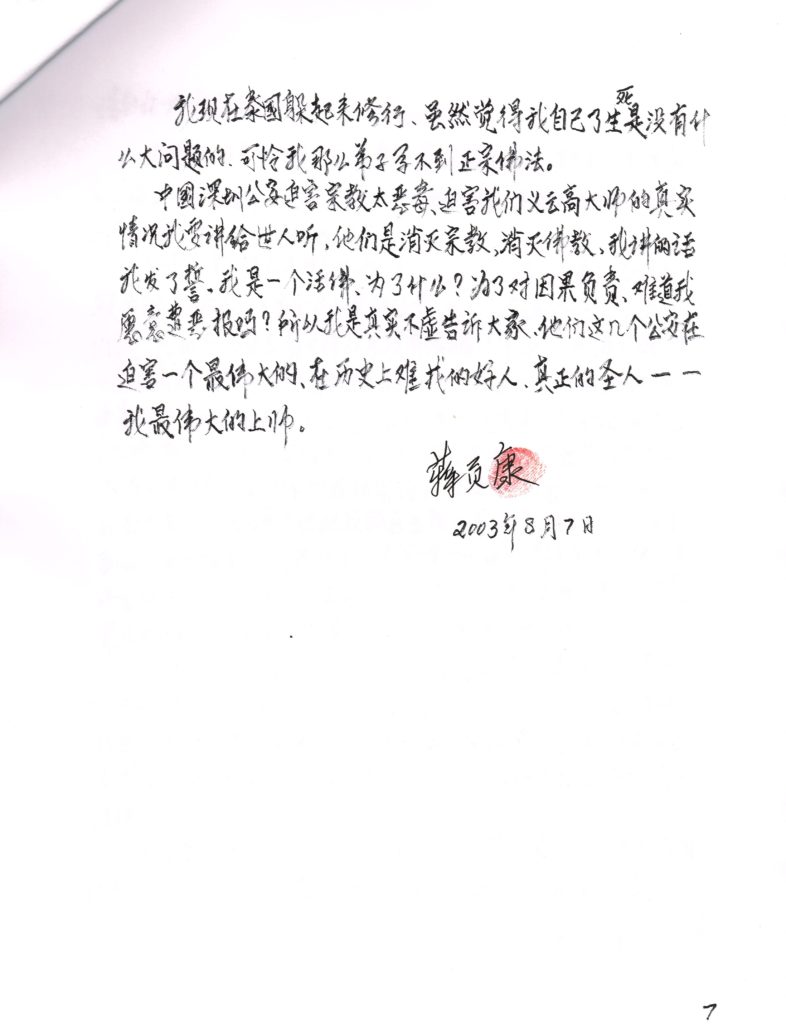 我现在泰国躲起来修行、虽然觉得我自己了生死是没有什
么大问题的、可怜我那么弟子学不到正宗佛法。
中国深圳公安迫害宗教太恶毒、迫害我们义云高大师的真实
情况我要讲给世人听，他们是消灭宗教、消灭佛教、我讲的话
我发了誓、我是一个活佛、为了什么？为了对因果负责、难道我
愿意遭恶报吗？所以我是真实不虚告诉大家、他们这几个公安在
迫害一个最伟大的、在历史上难找的好人、真正的圣人——
我最伟大的上师。
蒋贡康
2003年8月7日
7